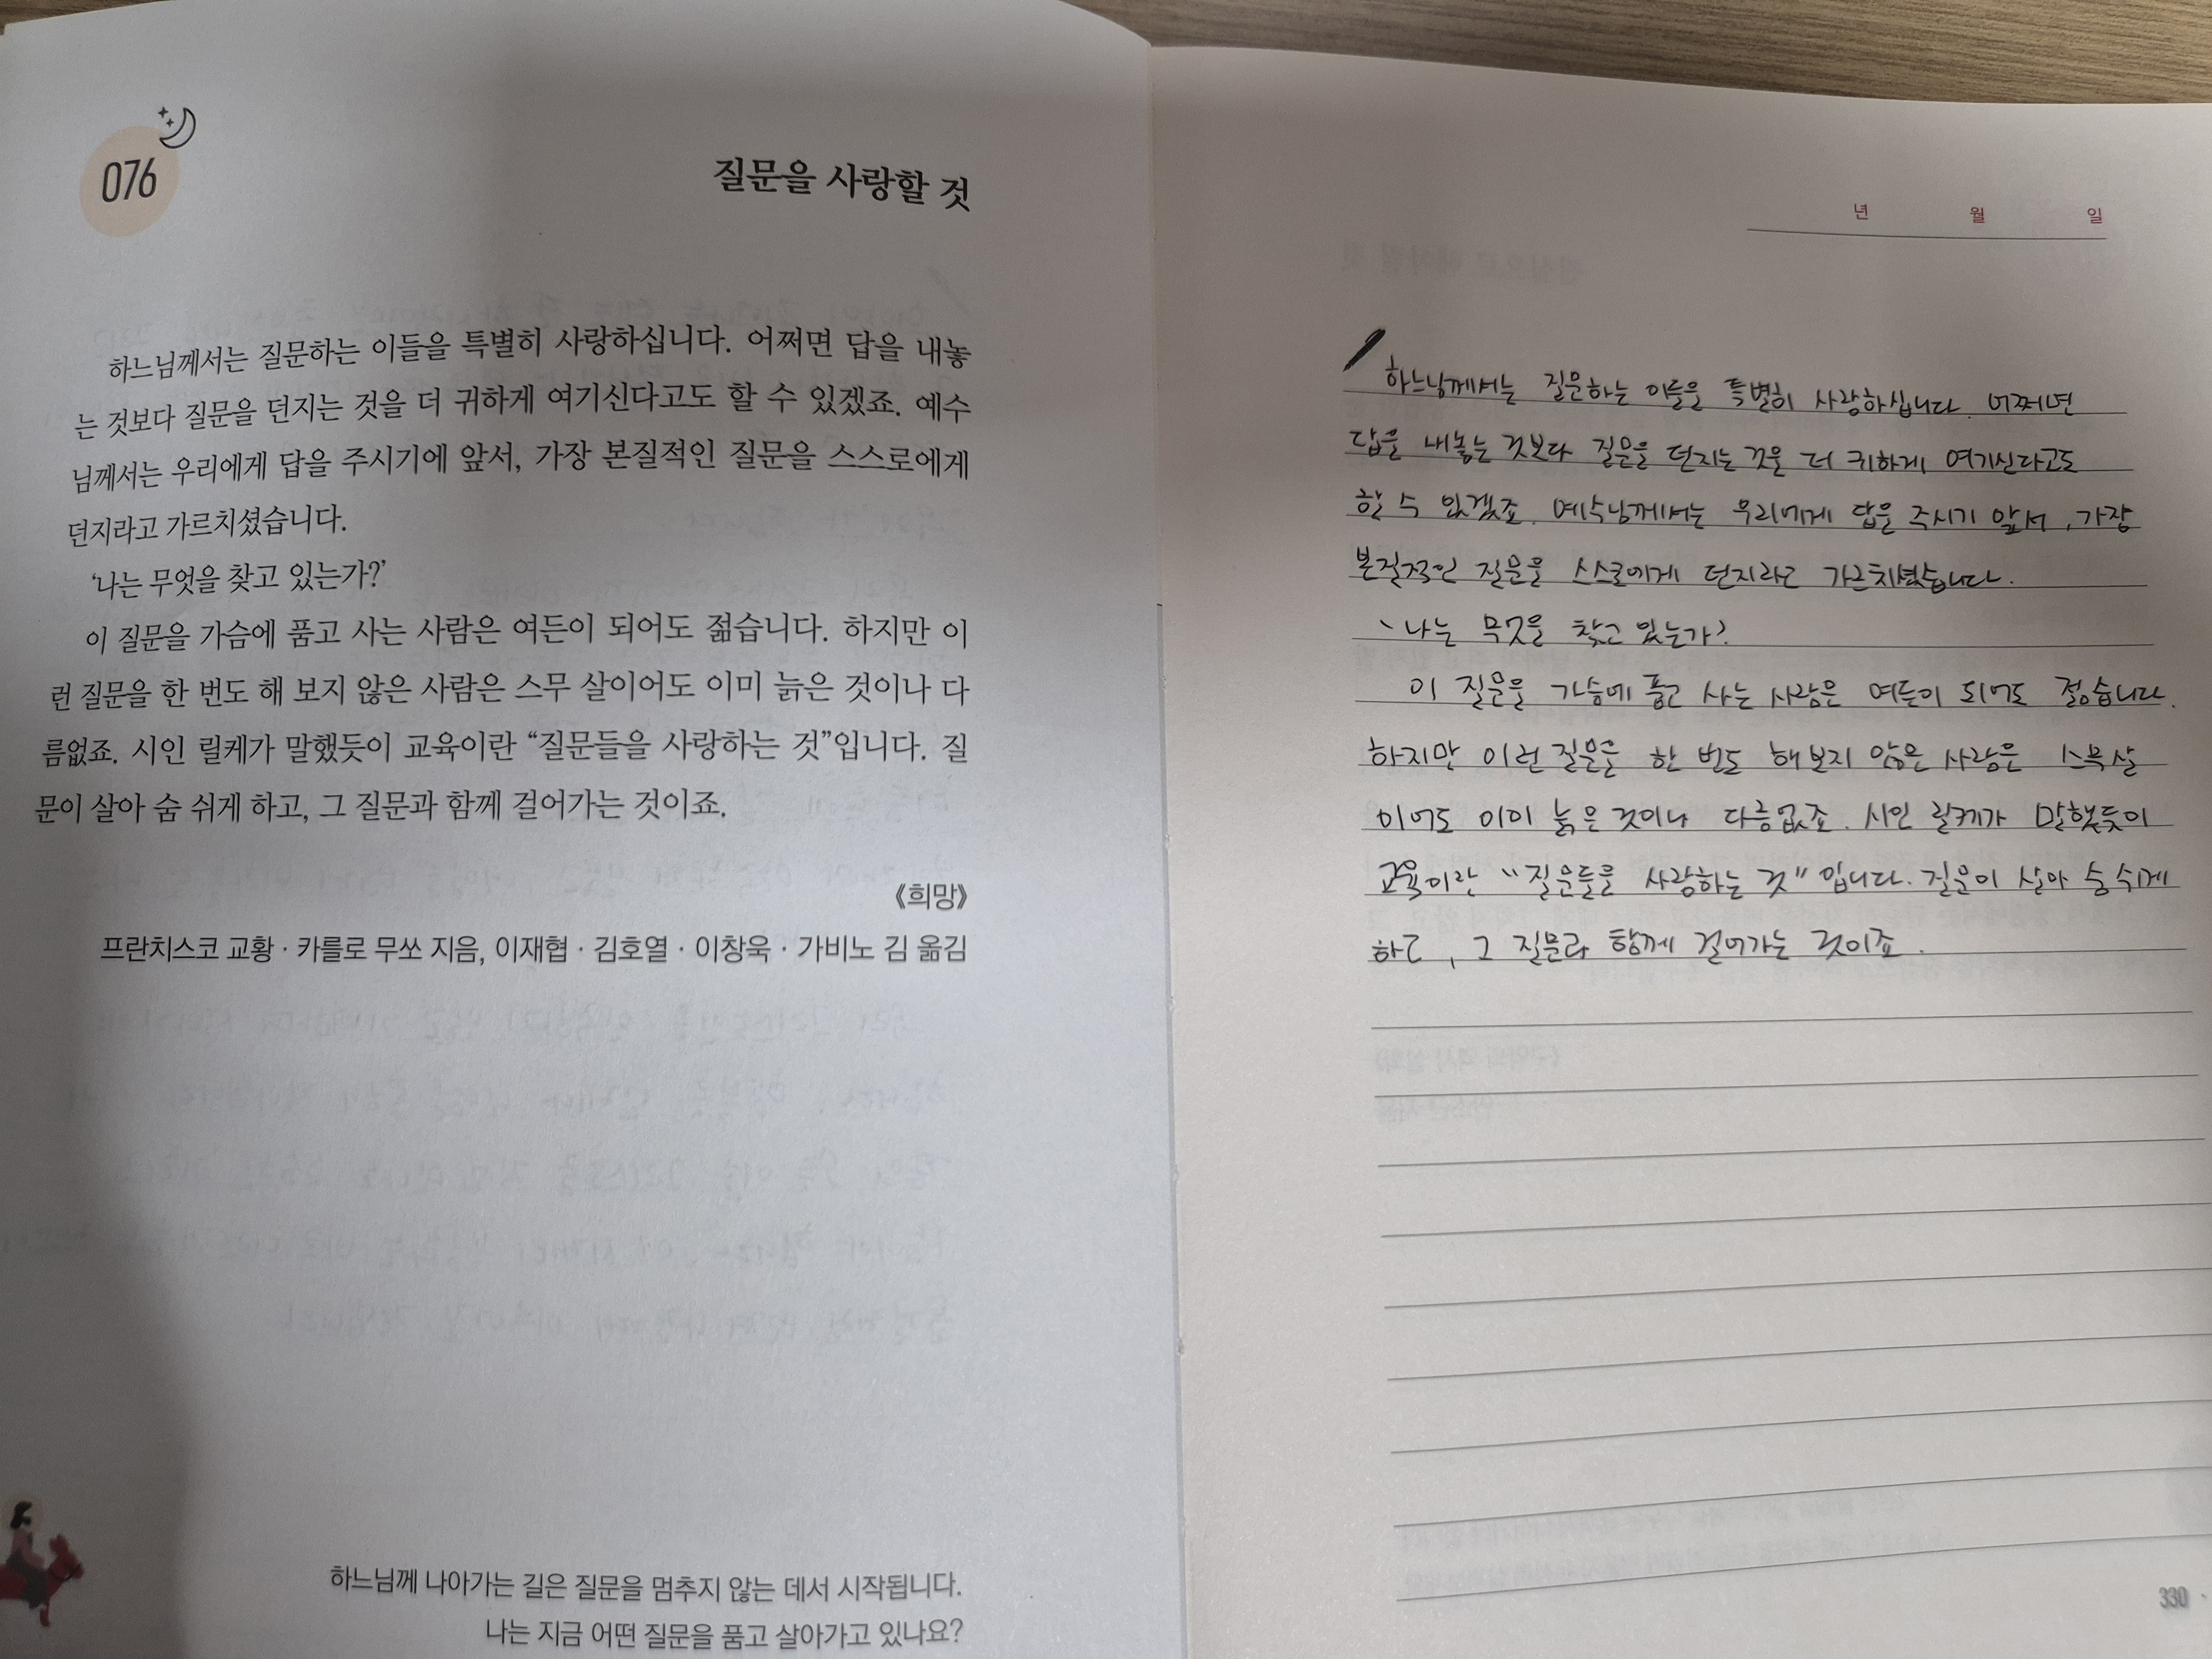 076
질문을 사랑할 것
하느님께서는 질문하는 이들을 특별히 사랑하십니다. 어쩌면 답을 내놓
는 것보다 질문을 던지는 것을 더 귀하게 여기신다고도 할 수 있겠죠. 예수
님께서는 우리에게 답을 주시기에 앞서, 가장 본질적인 질문을 스스로에게
던지라고 가르치셨습니다.
‘나는 무엇을 찾고 있는가?’
이 질문을 가슴에 품고 사는 사람은 여든이 되어도 젊습니다. 하지만 이
런 질문을 한 번도 해 보지 않은 사람은 스무 살이어도 이미 늙은 것이나 다
름없죠. 시인 릴케가 말했듯이 교육이란 “질문들을 사랑하는 것”입니다. 질
문이 살아 숨 쉬게 하고, 그 질문과 함께 걸어가는 것이죠.
《희망》
프란치스코 교황 · 카를로 무쏘 지음, 이재협 · 김호열 · 이창욱 · 가비노 김 옮김
하느님께 나아가는 길은 질문을 멈추지 않는 데서 시작됩니다.
나는 지금 어떤 질문을 품고 살아가고 있나요?
년 월 일
하느님께서는 질문하는 이들을 특별히 사랑하십니다. 어쩌면
답을 내놓는 것보다 질문을 던지는 것을 더 귀하게 여기신다고도
할 수 있겠죠. 예수님께서는 우리에게 답을 주시기 앞서, 가장
본질적인 질문을 스스로에게 던지라고 가르치셨습니다.
` 나는 무엇을 찾고 있는가?
이 질문을 가슴에 품고 사는 사람은 여든이 되어도 젊습니다.
하지만 이런 질문을 한 번도 해보지 않은 사람은 스무살
이어도 이미 늙은 것이나 다름없죠. 시인 릴케가 말했듯이
교육이란 "질문들을 사랑하는 것" 입니다. 질문이 살아 숨 쉬게
하고, 그 질문과 함께 걸어가는 것이죠.
330